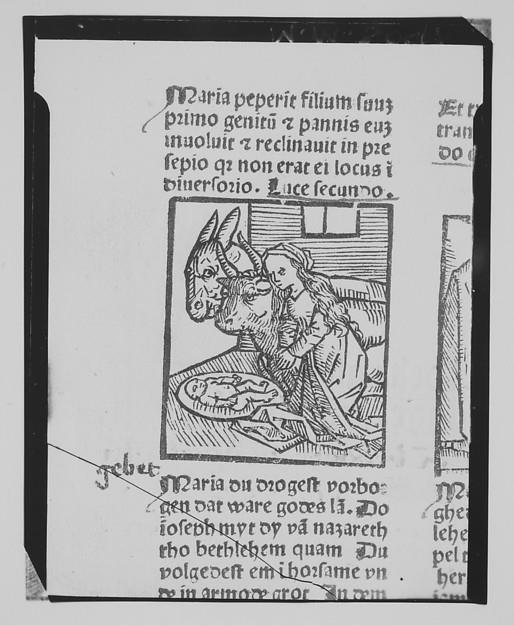 Maria peperit filium suuʒ
primo genitū ⁊ pannis euʒ
inuoluit ⁊ reclinauit in pre
sepio qꝛ non erat ei locus ī
diuersorio. Luce secundo.
gebet
Maria du drogest vorbo⸗
gen dat ware godes lā. Do
ioseph myt dy vā nazareth
tho bethlehem quam Du
volgedest em ī horsame vn
de in armode grot In dem
Et
tran
do
ghe
lehe
pel
her